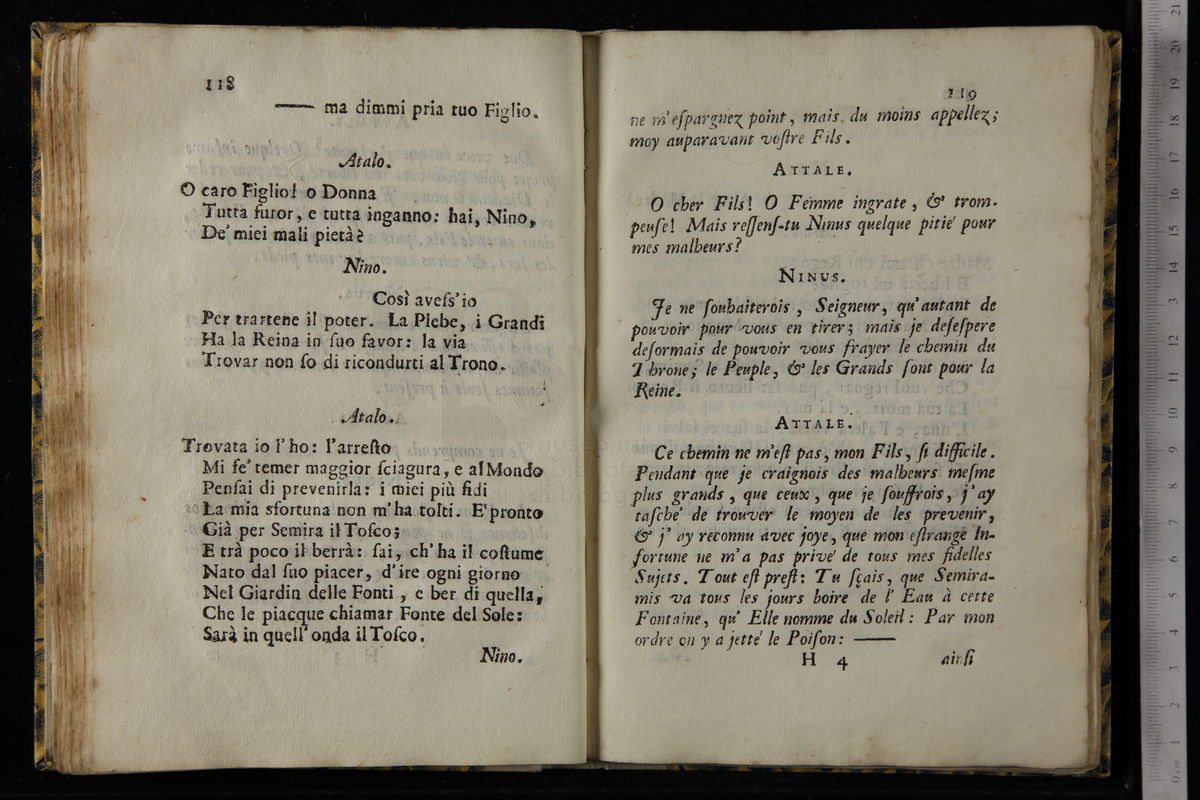 118
—— ma dimmi pria tuo Figlio.
Atalo.
O caro Figlio! o Donna
Tutta furor, e tutta inganno: hai, Nino,
De' miei mali pietà?
Nino.
Così aveſs'io
Per trartene il poter. La Plebe, i Grandi
Ha la Reina in ſuo favor: la via
Trovar non ſo di ricondurti al Trono.
Atalo.
Trovata io l'ho: l'arreſto
Mi fe' temer maggior ſciagura, e al Mondo
Penſai di prevenirla: i miei più fidi
La mia sfortuna non m'ha tolti. E' pronto
Già per Semira il Toſco;
E trà poco il berrà: ſai, ch'ha il coſtume
Nato dal ſuo piacer, d'ire ogni giorno
Nel Giardin delle Fonti, e ber di quella,
Che le piacque chiamar Fonte del Sole:
Sarà in quell'onda il Toſco.
Nino.
119
ne m'eſpargnez point, mais du moins appellez;
moy auparavant voſtre Fils.
ATTALE.
O cher Fils! O Femme ingrate, & trom-
peuſe! Mais reſſenſ-tu Ninus quelque pitié pour
mes malheurs?
NINUS.
Je ne ſouhaiterois, Seigneur, qu'autant de
pouvoir pour vous en tirer; mais je deſeſpere
deſormais de pouvoir vous frayer le chemin du
Throne; le Peuple, & les Grands ſont pour la
Reine.
ATTALE.
Ce chemin ne m'eſt pas, mon Fils, ſi difficile.
Pendant que je craignois des malheurs meſme
plus grands, que ceux, que je ſouffrois, j'ay
taſché de trouver le moyen de les prevenir,
& j'ay reconnu avec joye, que mon eſtrange In-
fortune ne m'a pas privé de tous mes fidelles
Sujets. Tout eſt preſt: Tu ſçais, que Semira-
mis va tous les jours boire de l'Eau à cette
Fontaine, qu'Elle nomme du Soleil: Par mon
ordre on y a jetté le Poiſon: ——
H 4 ainſi